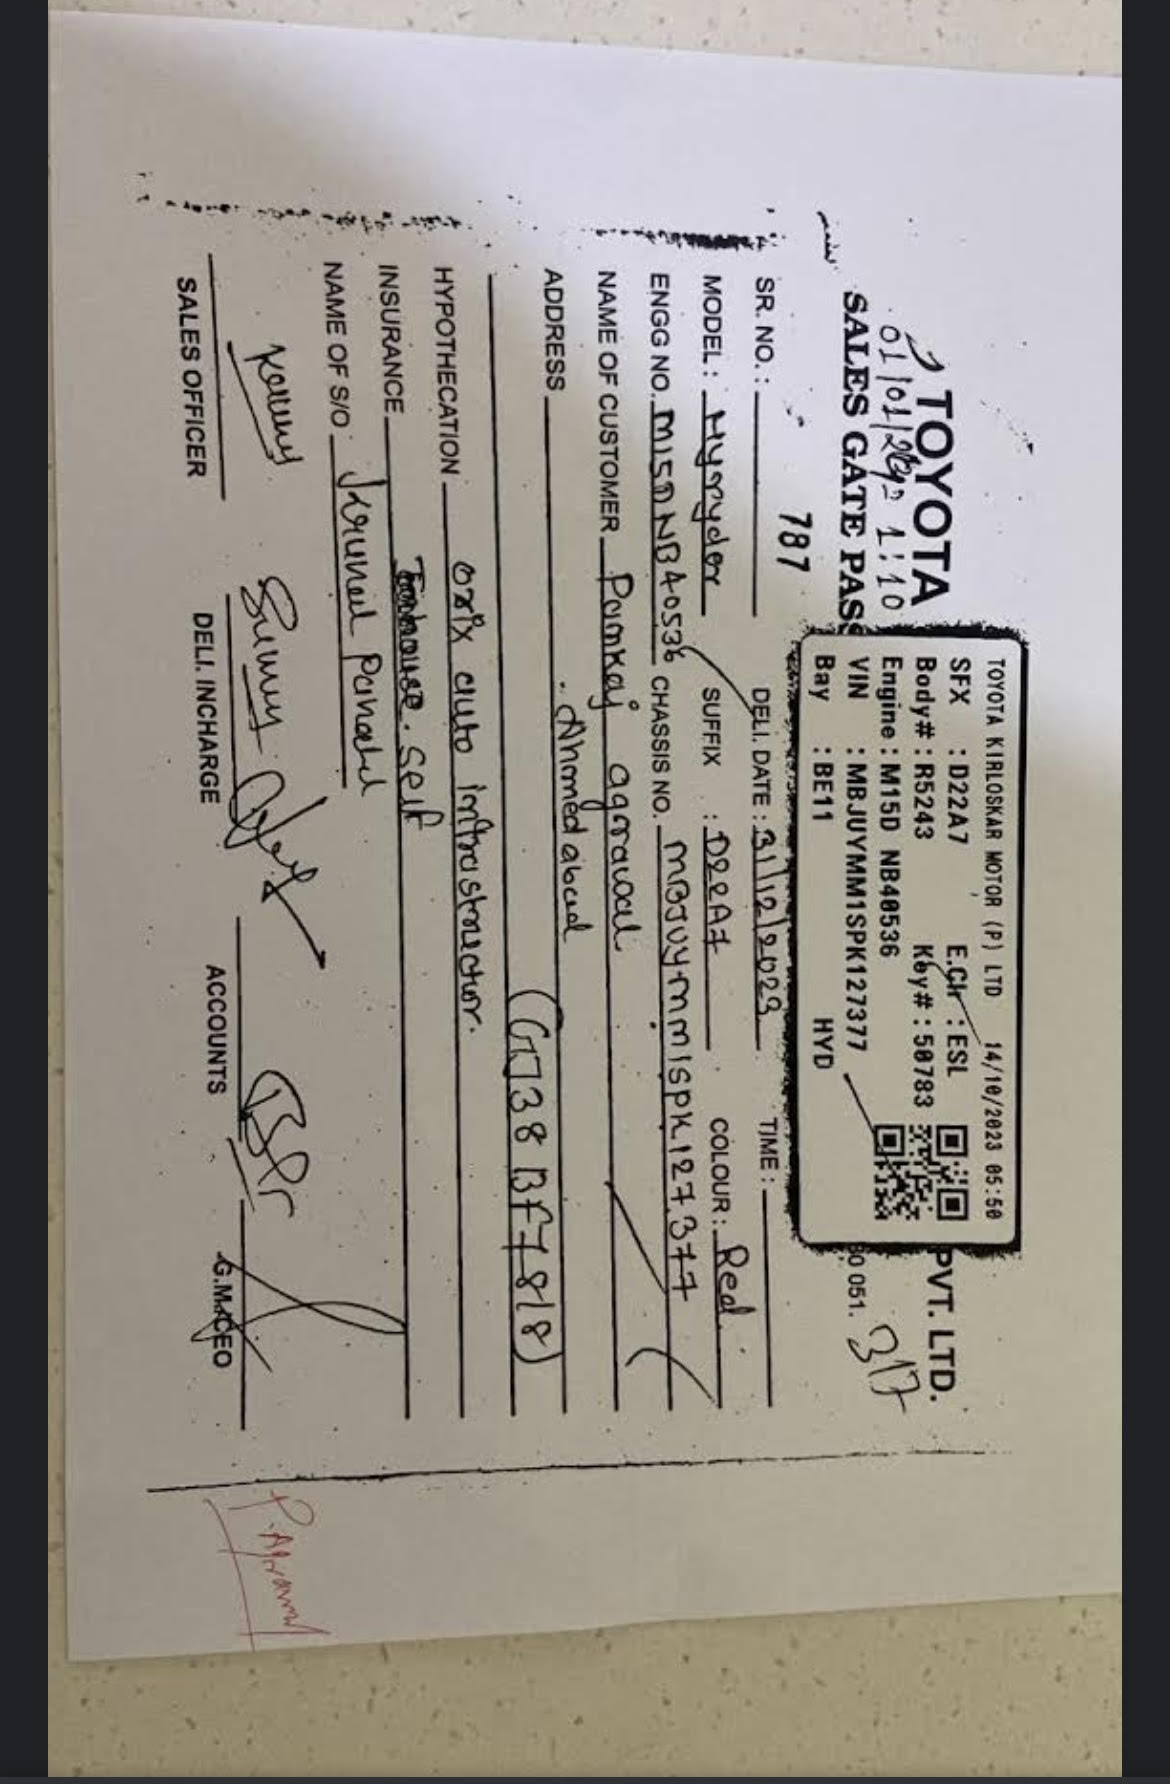 TOYOTA
PVT. LTD.
01/01/24 1:10
SALES GATE PASS
30 051.
317
TOYOTA KIRLOSKAR MOTOR (P) LTD 14/10/2023 05:50
SFX : D22A7 E.CH : ESL
Body# : R5243 Key# : 50783
Engine : M15D NB40536
VIN : MBJUYMM1SPK127377
Bay : BE11 HYD
787
SR. NO. : DELI. DATE : 31/12/2023 TIME :
MODEL : Hyryder SUFFIX : D22A7 COLOUR : Red.
ENGG NO. M15DNB40536 CHASSIS NO. MBJUYMM1SPK127377
NAME OF CUSTOMER Pankaj agrawal
ADDRESS Ahmedabad
(GJ38BF7818)
HYPOTHECATION orix auto infrastructor.
INSURANCE Self
NAME OF S/O
SALES OFFICER DELI. INCHARGE ACCOUNTS G.M./CEO
P. Agrawal